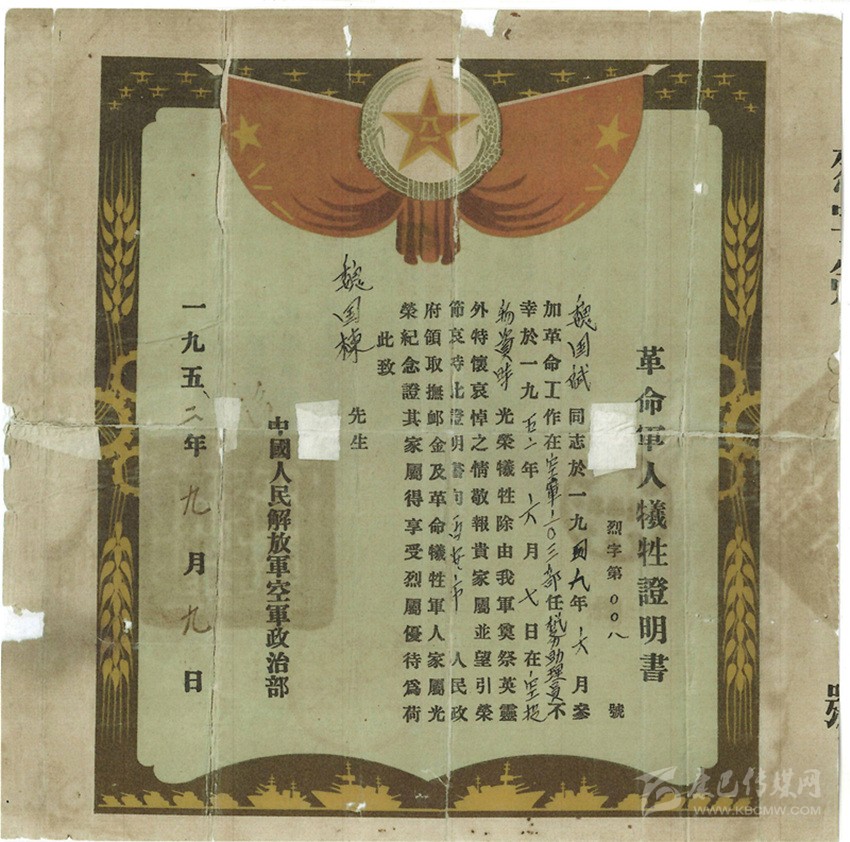 革命軍人犧牲證明書
烈字第００八號
魏国斌同志於一九四九年六月參
加革命工作在空軍一〇三部任機要助理員不
幸於一九五二年六月七日在空投
物資時光荣犧牲除由我軍奠祭英靈
外特懷哀悼之情敬報貴家屬並望引榮
節哀持此證明書向西安市人民政
府領取撫邮金及革命犧牲軍人家屬光
榮紀念證其家屬得享受烈屬優待爲荷
此致
魏国棟先生
中國人民解放軍空軍政治部
一九五二年九月九日
八一
八一
八一
康巴传媒网
WWW.KBCMW.COM